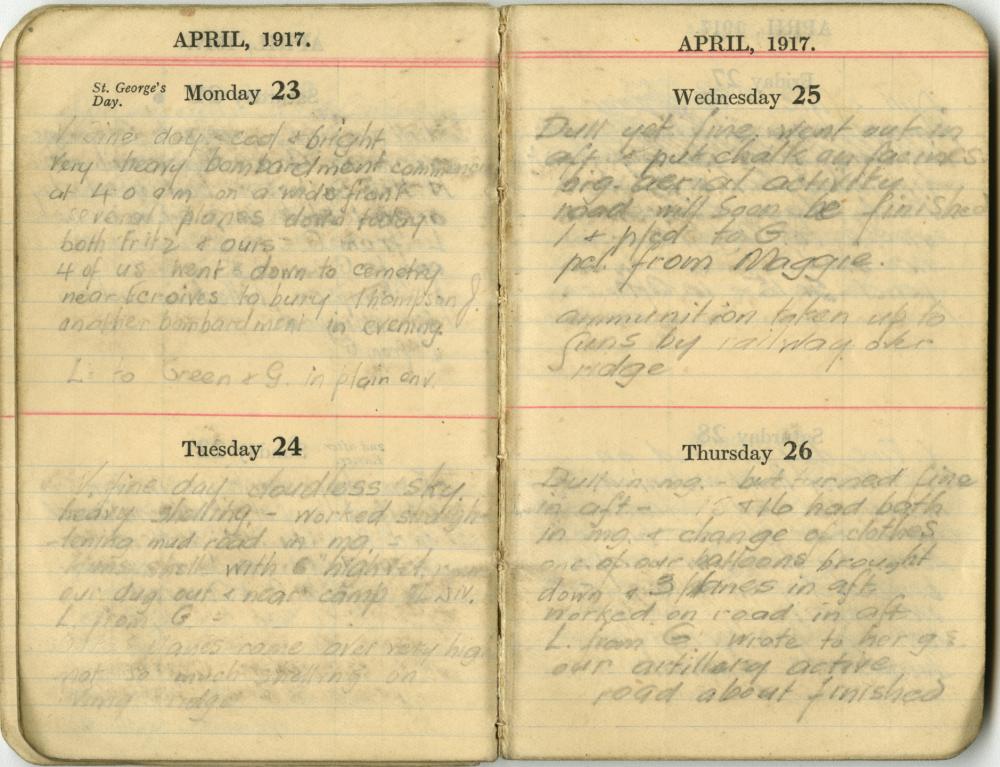 APRIL, 1917.
St. George's
Day.
Monday 23
V. fine day - cool & bright
very heavy bombardment
at 4 0 am on a wide front
several planes down today
both Fritz & ours
4 of us went down to cemetry
near Ecroives to bury Thompson J.
another bombardment in evening.
L. to Green & G. in plain env.
Tuesday 24
V. fine day cloudless sky.
heavy shelling - worked straigh-
tening mud road in mg.
shell with
our dug out & near camp
L. from G
planes came over very hig
not so much shelling on
vimy ridge
APRIL, 1917.
Wednesday 25
Dull yet fine. went out in
aft & put chalk on facines.
big aerial activity
road will soon be finished
L & pled to G
pcl. from Maggie.
ammunition taken up to
guns by railway over
ridge.
Thursday 26
Dull in mg. - but turned fine
in aft - & H6 had bath
in mg. & change of clothes
one of our balloons brought
down & 3 planes in aft
worked on road in aft
L. from G. wrote to her
our artillery active
road about finished